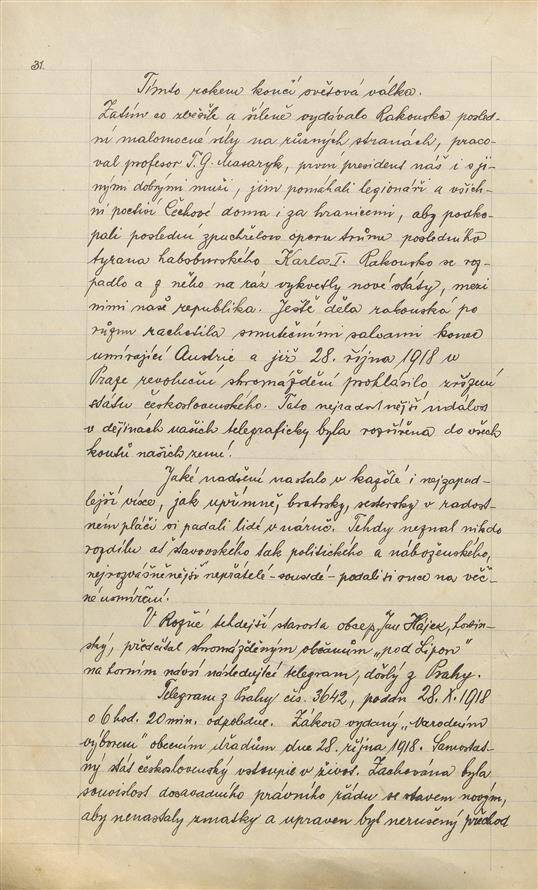 31.
Tímto rokem končí světová válka.
Zatím co zběsile a šíleně vydávalo Rakousko posled-
ní malomocné síly na různých stranách, praco-
val profesor T. G. Masaryk, první president náš i s ji-
nými dobrými muži, jim pomáhali legionáři a všich-
ni poctiví Čechové doma i za hranicemi, aby podko-
pali poslední zpuchřelou oporu trůnu posledního
tyrana habsburského Karla I. Rakousko se roz-
padlo a z něho na ráz vykvetly nové státy, mezi
nimi naše republika. Ještě děla rakouská po
různu rachotila smutečními salvami konec
umírající Austrie a již 28. října 1918 v
Praze revoluční shromáždění prohlásilo zřízení
státu československého. Tato nejradostnější událost
v dějinách našich telegraficky byla rozšířena do všech
koutů našich zemí.
Jaké nadšení nastalo v každé i nejzapad-
lejší vísce, jak upřímně, bratrsky, sestersky v radost-
ném pláči si padali lidé v náruč. Tehdy neznal nikdo
rozdílu ať stavovského tak politického a náboženského,
nejrozvášněnější nepřátelé - sousedé - podali si ruce na věč-
né usmíření.
V Rozné tehdejší starosta obce p. Jan Hájek,
ský, předčítal shromážděným občanům „pod Lipou"
na horním návsi následující telegram, došlý z Prahy.
Telegram z Prahy čís. 3642, podán 28. X. 1918
o 6 hod. 20 min. odpoledne. Zákon vydaný „Národním
výborem" obecním úřadům dne 28. října 1918. Samostat-
ný stát československý vstoupil v život. Zachována byla
souvislost dosavadního právního řádu se stavem novým,
aby nenastaly zmatky a upraven byl nerušený přechod